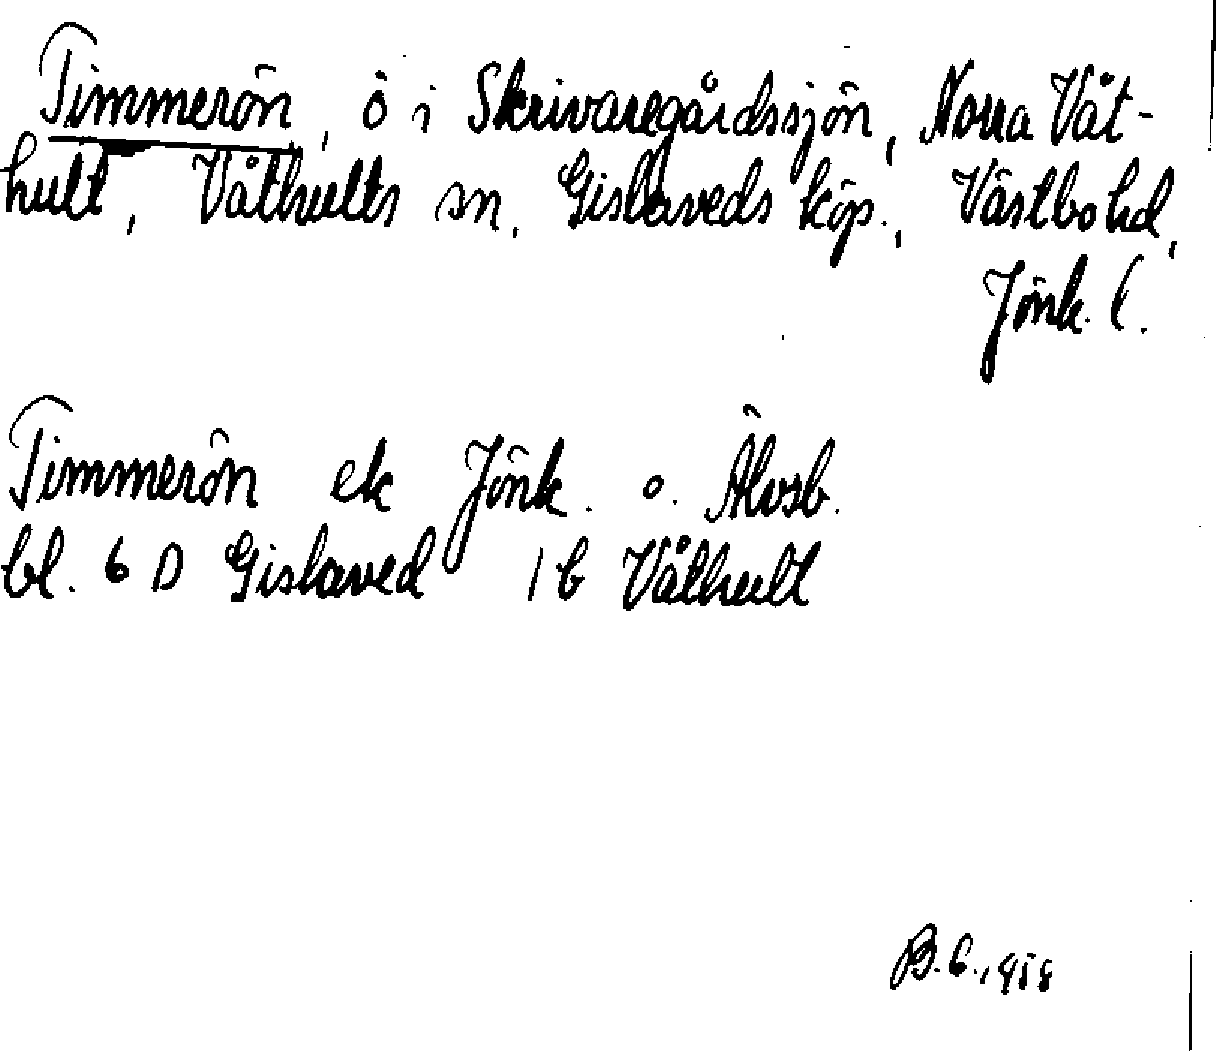 Timmerön, ö i Skrivaregårdssjön, Norra Våt-
hult, Våthults sn, Gislaveds köp., Västbo hd,
Jönk. l.
Timmerön ek Jönk. o. Älvsb.
bl. 6 D Gislaved 1 b Våthult